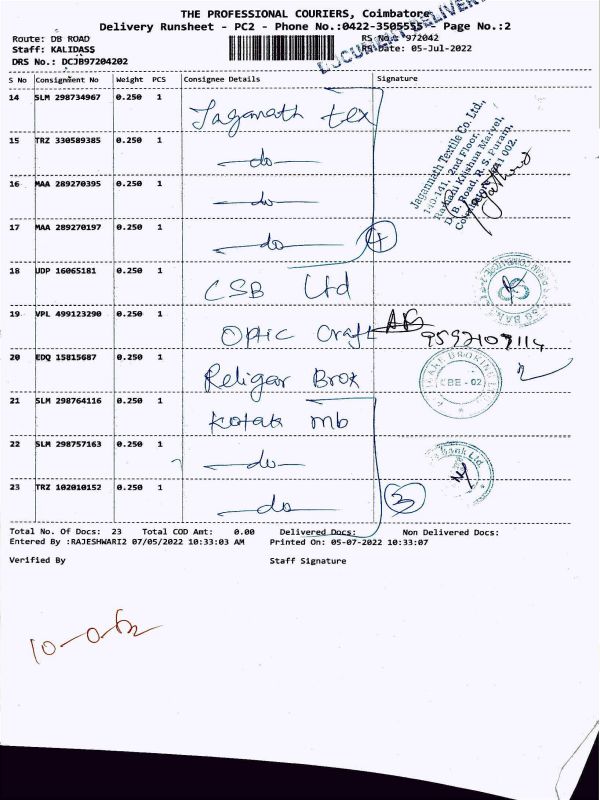 THE PROFESSIONAL COURIERS, Coimbatore
Delivery Runsheet - PC2 - Phone No.:0422-3505555 Page No.:2
Route: DB ROAD RS No.: 972042
Staff: KALIDASS RS Date: 05-Jul-2022
DRS No.: DCJB97204202
DOCUMENT DELIVERY
S No Consignment No Weight PCS Consignee Details Signature
14 SLM 298734967 0.250 1 Jaganath tex
15 TRZ 330589385 0.250 1 do
16 MAA 289270395 0.250 1 do
17 MAA 289270197 0.250 1 do 4
Jagannath Textile Co. Ltd.,
140-141, 2nd Floor,
Krishna Marvel,
D.B. Road, R.S. Puram,
002.
18 UDP 16065181 0.250 1 CSB Ltd
19 VPL 499123290 0.250 1 Optic Craft 9592107114
20 EDQ 15815687 0.250 1 Religar Brok
CBE - 02
21 SLM 298764116 0.250 1 Kotak mb
22 SLM 298757163 0.250 1 do
Bank Ltd.
23 TRZ 102010152 0.250 1 do 3
Total No. Of Docs: 23 Total COD Amt: 0.00 Delivered Docs: Non Delivered Docs:
Entered By :RAJESHWARI2 07/05/2022 10:33:03 AM Printed On: 05-07-2022 10:33:07
Verified By Staff Signature